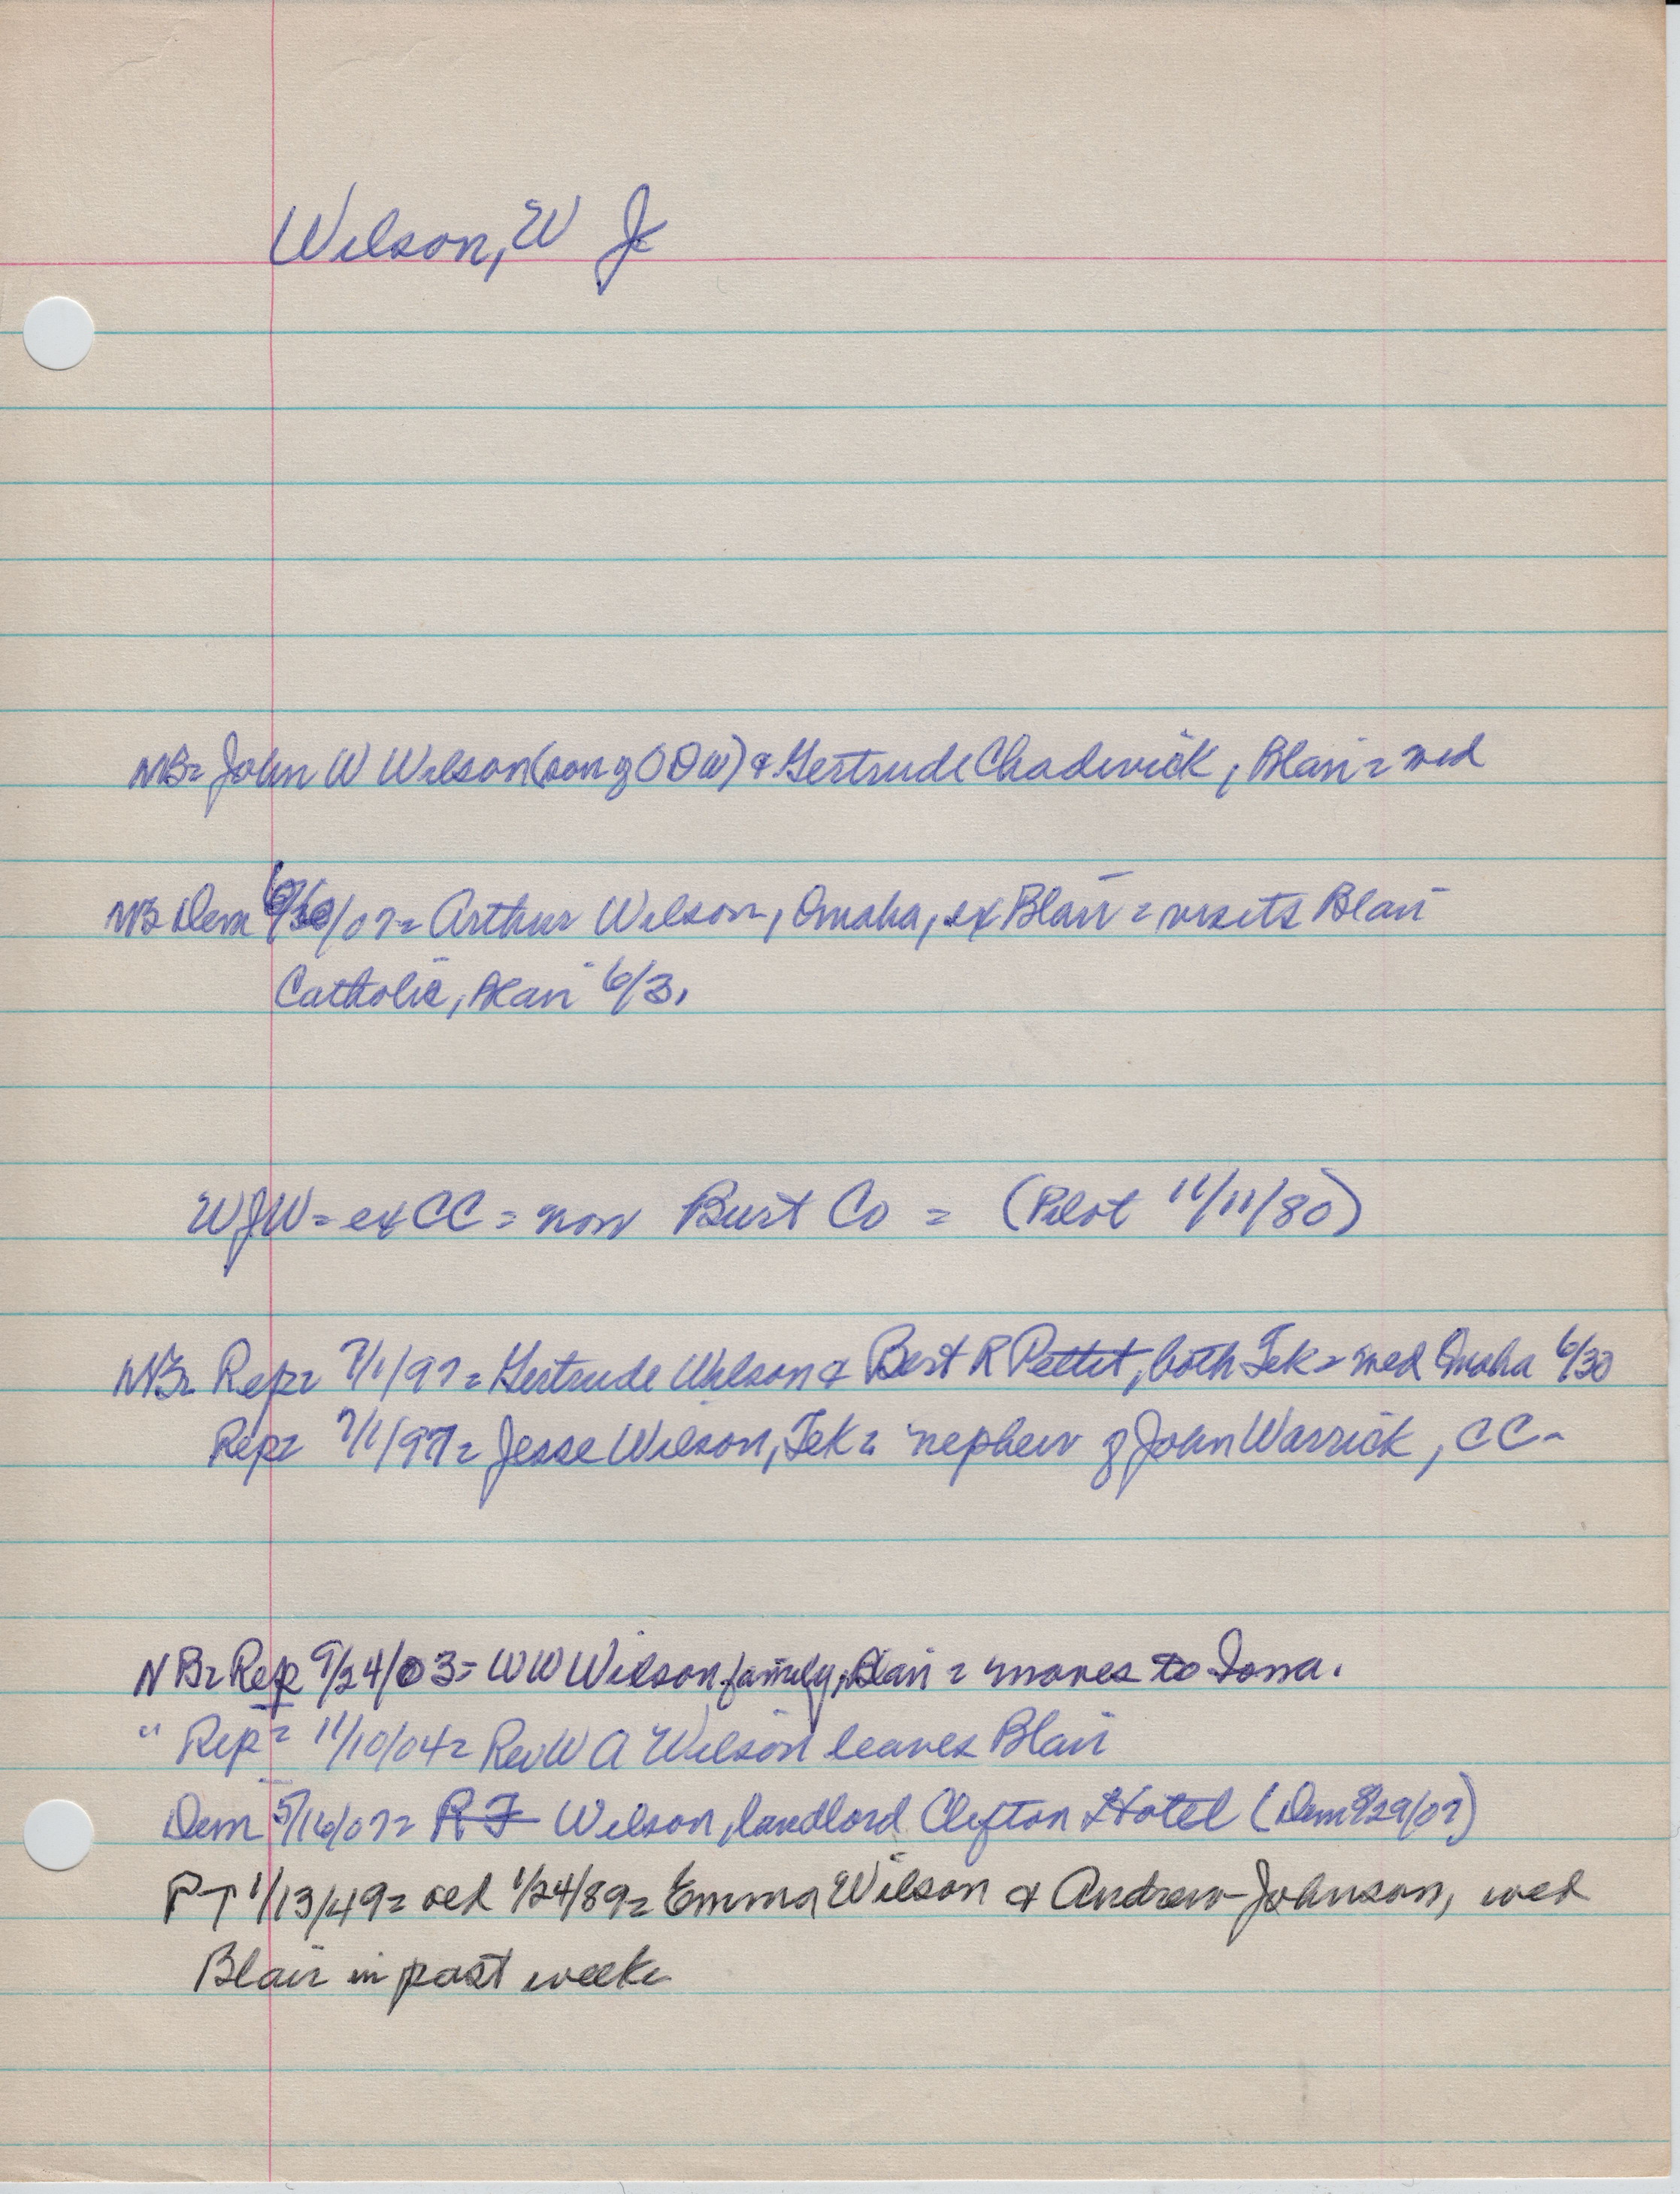 Wilson, W J
NB= John W Wilson (son of O O W) & Gertrude Chadwick, Blair = wed
NB Dem /07= Arthur Wilson, Omaha, ex Blair = visits Blair
Catholic, Blair 6/3.
WJW = ex CC = now Burt Co = (Pilot 11/11/80)
NB= Rep= 7/1/97= Gertrude Wilson & Bert R Pettit, both Tek= wed Omaha 6/30
Rep= 7/1/97= Jesse Wilson, Tek= nephew of John Warrick, CC-
NB= Rep 9/24/03= WW Wilson family, Blair = moves to Iowa.
" Rep= 11/10/04= Rev W A Wilson leaves Blair
Dem 5/16/07= R F Wilson, landlord Clifton Hotel (Dem 8/29/07)
PT 1/13/49= old 1/24/89= Emma Wilson & Andrew Johnson, wed
Blair in past week